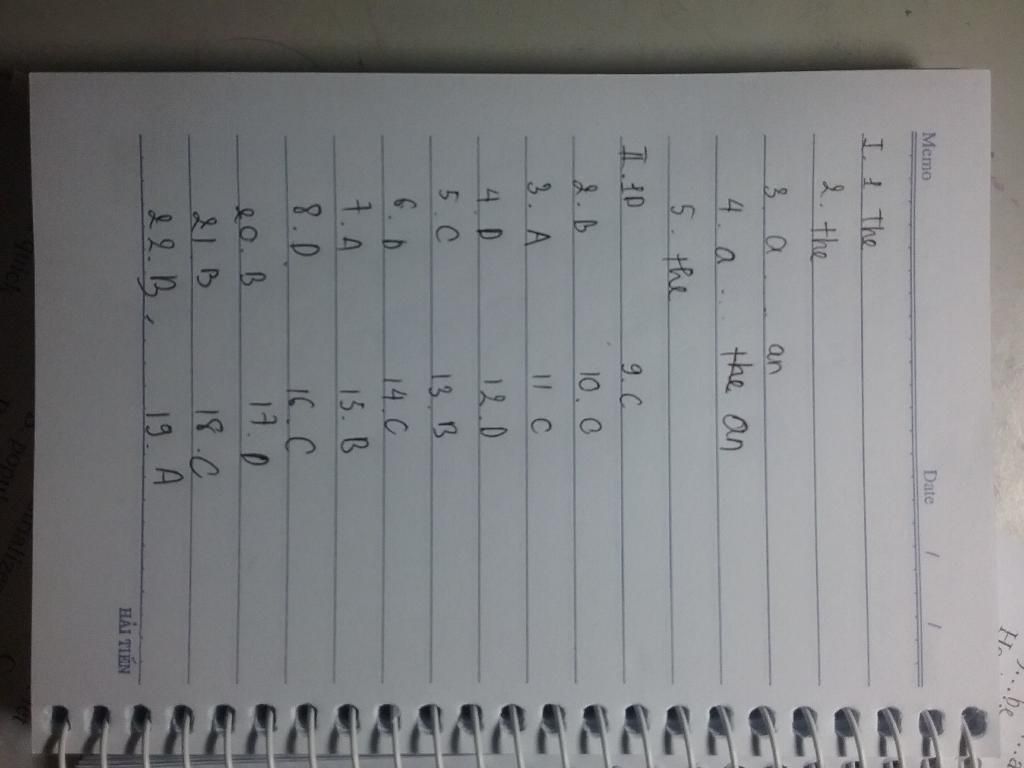 Memo Date / /
I. 1 The
2. the
3 a ... an
4. a ... the an
5. the
II. 1D 9. C
2. B 10. C
3. A 11 C
4. D 12. D
5. C 13. B
6. D 14. C
7. A 15. B
8. D 16. C
20. B 17. D
21 B 18. C
22. B, 19. A
HẢI TIẾN